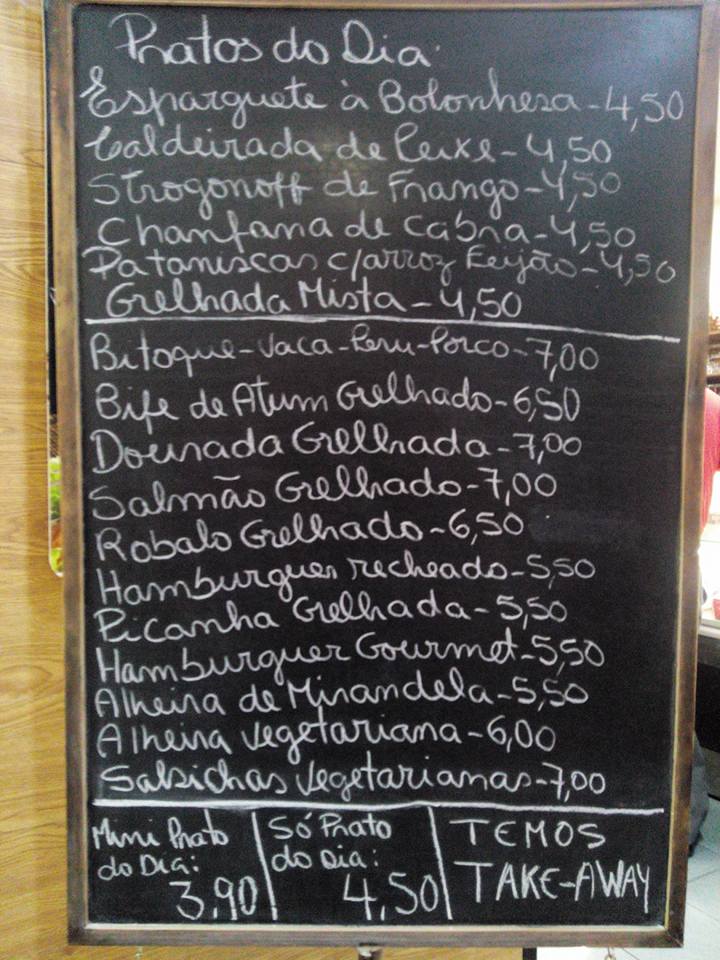 Pratos do Dia:
Esparguete à Bolonhesa-4,50
Caldeirada de Peixe-4,50
Strogonoff de Frango-4,50
Chanfana de Cabra-4,50
Pataniscas c/arroz Feijão-4,50
Grelhada Mista-4,50
Bitoque-Vaca-Peru-Porco-7,00
Bife de Atum Grelhado-6,50
Dourada Grelhada-7,00
Salmão Grelhado-7,00
Robalo Grelhado-6,50
Hamburguer recheado-5,50
Picanha Grelhada-5,50
Hamburguer Gourmet-5,50
Alheira de Mirandela-5,50
Alheira Vegetariana-6,00
Salsichas Vegetarianas-7,00
Mini Prato
do Dia:
3,90
Só Prato
do Dia:
4,50
TEMOS
TAKE-AWAY